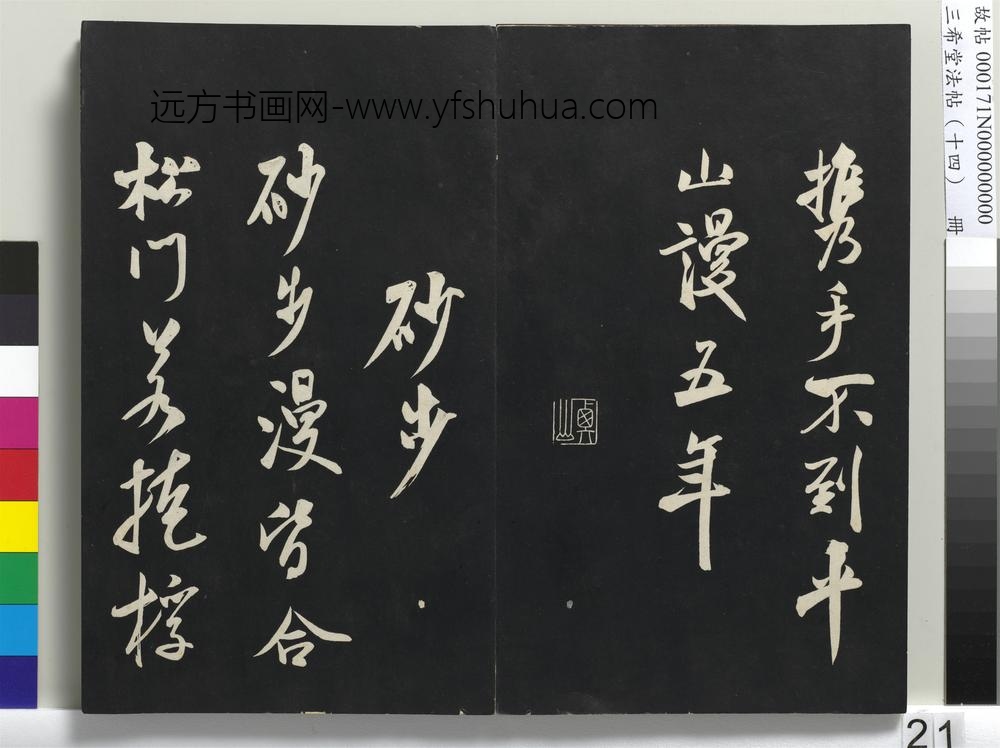 携手不到平
山謾五年
砂步
砂步漫皆合
松门若掩桴
远方书画网-www.yfshuhua.com
故帖 000171N000000000
三希堂法帖(十四) 册
21